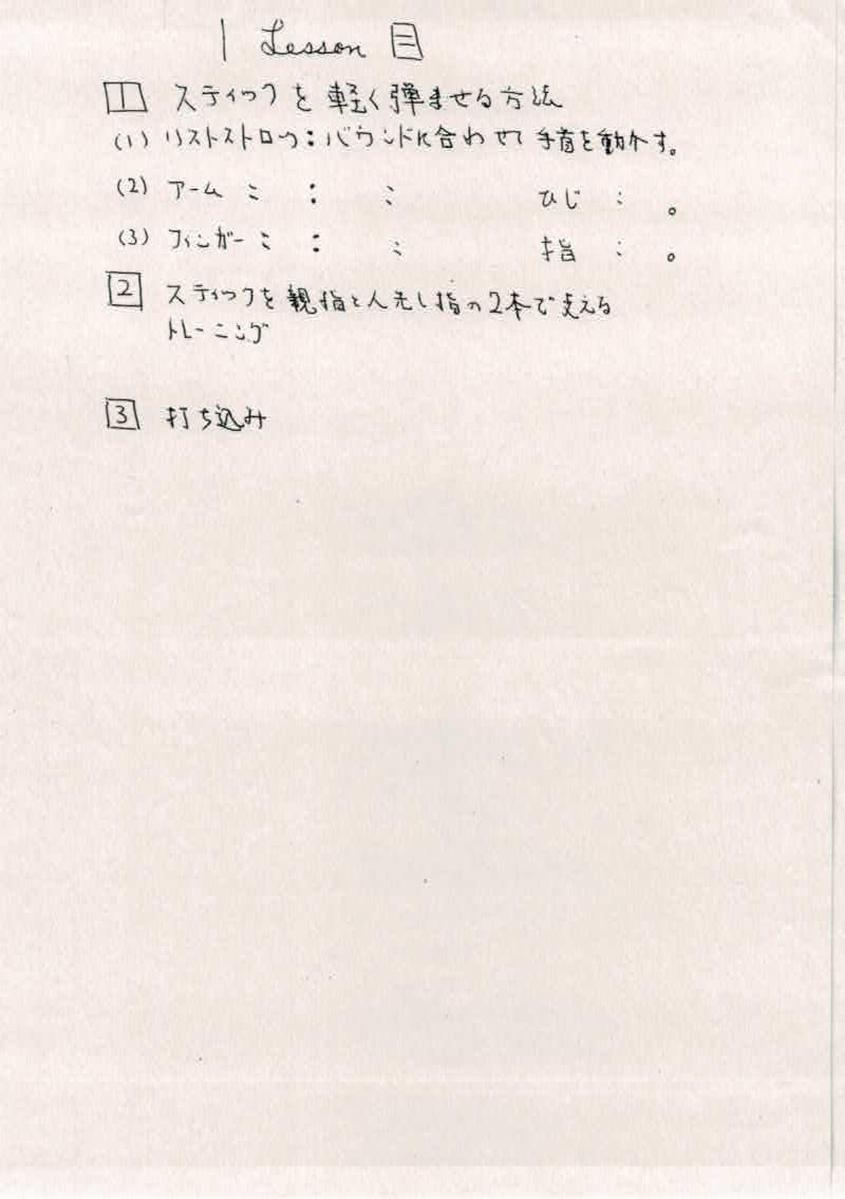 1 Lesson 目
1 スティックを軽く弾ませる方法
(1) リストストローク:バウンドに合わせて手首を動かす。
(2) アーム 〃 : 〃 ひじ 〃 。
(3) フィンガー 〃 : 〃 指 〃 。
2 スティックを親指と人先し指の2本で支える
トレーニング
3 打ち込み